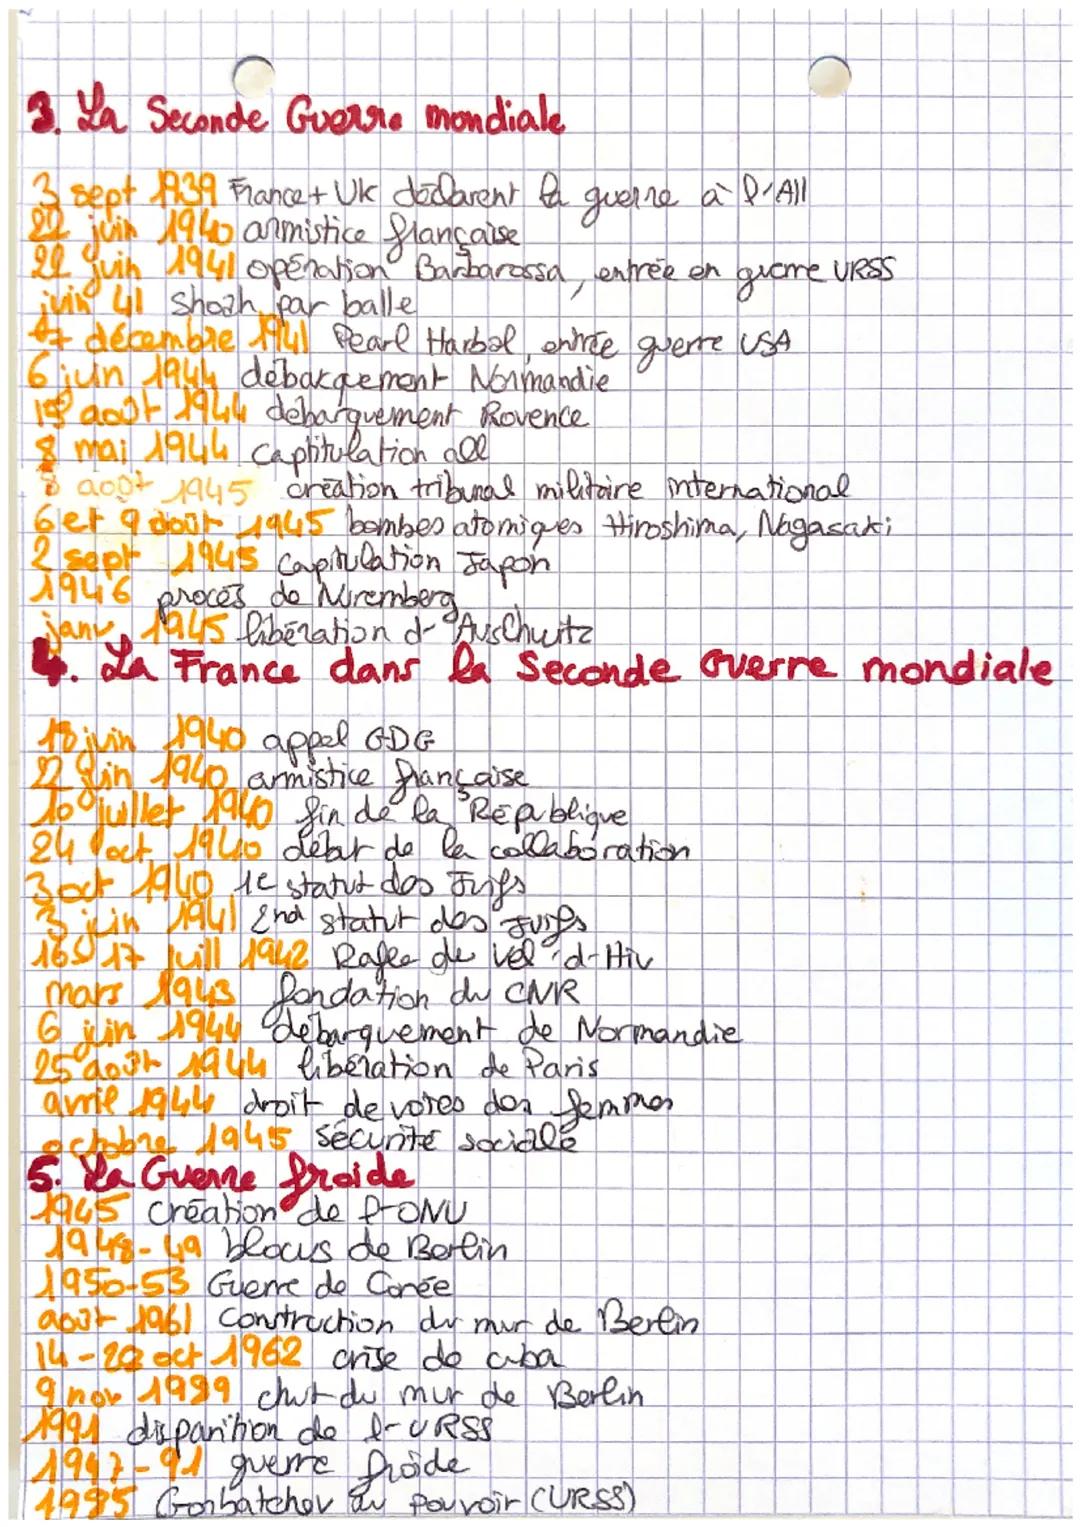 3. La Seconde Guerre mondiale
3 sept 1939 France + UK déclarent la guerre à l'All
22 juin 1940 armistice française
22 juin 1941 opération Barbarossa, entrée en guerre URSS
juin 41 shoah par balle
7 décembre 1941 Pearl Harbol, entrée guerre USA
6 juin 1944 débarquement Normandie
15 août 1944 débarquement Provence
8 mai 1944 captitulation all
8 août 1945 création tribunal militaire international
6 et 9 août 1945 bombes atomiques Hiroshima, Nagasaki
2 sept 1945 capitulation Japon
1946 procès de Nuremberg
janv 1945 libération d'Auschwitz
4. La France dans la Seconde Guerre mondiale
18 juin 1940 appel GDG
22 juin 1940 armistice française
10 juillet 1940 fin de la République
24 oct 1940 début de la collaboration
3 oct 1940 1e statut des Juifs
3 juin 1941 2nd statut des Juifs
16 17 juill 1942 Rafle de vel'd'Hiv
mars 1943 fondation du CNR
6 juin 1944 débarquement de Normandie
25 août 1944 libération de Paris
avril 1944 droit de votes des femmes
octobre 1945 sécurité sociale
5. La Guerre froide
1945 création de l'ONU
1948-49 blocus de Berlin
1950-53 Guerre de Corée
août 1961 construction du mur de Berlin
14-28 oct 1962 crise de cuba
9 nov 1989 chut du mur de Berlin
1991 disparition de l'URSS
1947-91 guerre froide
1985 Gorbatchev au pouvoir (URSS)